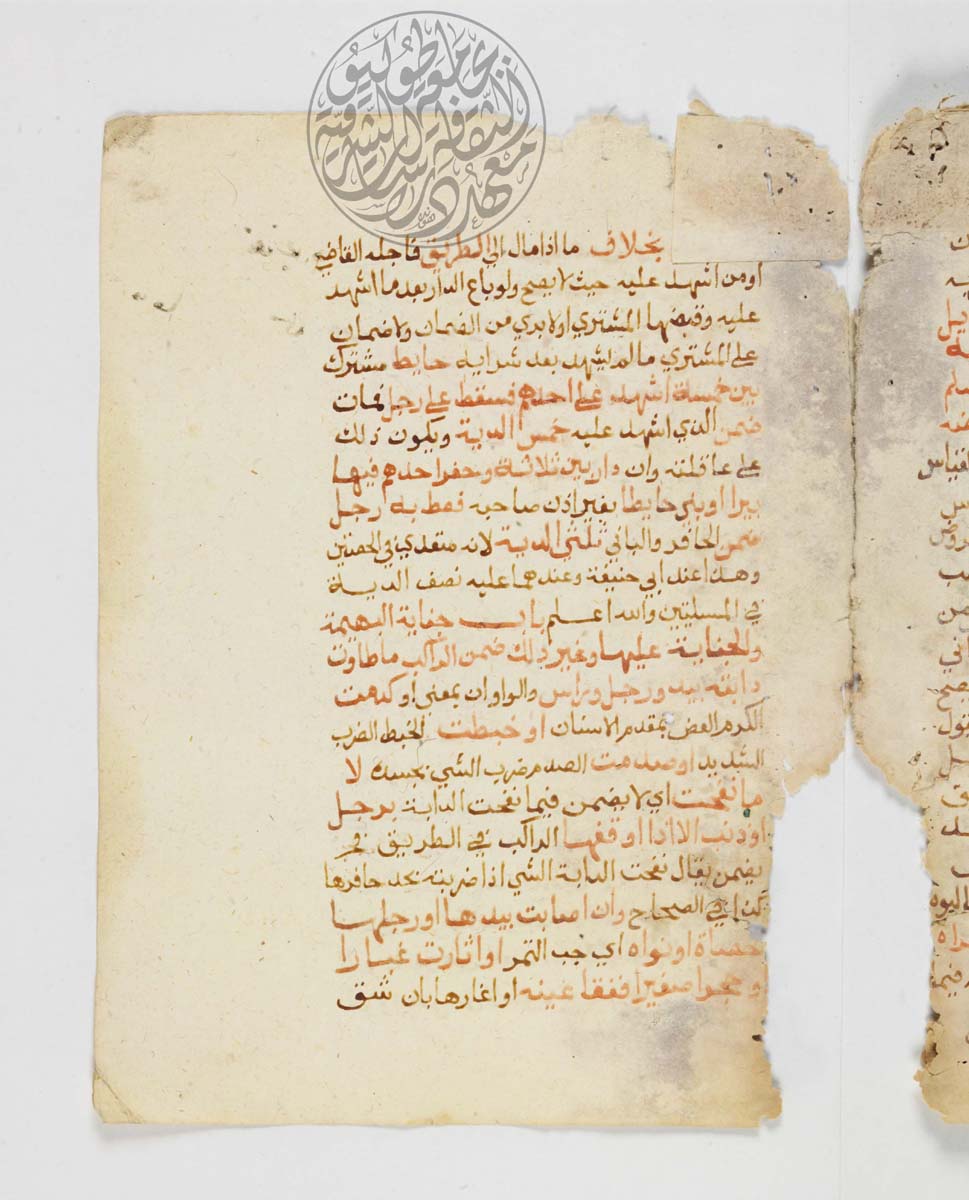 بخلاف ما اذا مال الى الطريق فاجله القاضي
او من اشهد عليه حيث لا يصح ولو باع الدار بعد ما اشهد
عليه وقبضها المشتري او لا بري من الضمان ولا ضمان
على المشتري ما لم يشهد بعد شرايه حايط مشترك
بين خمسة اشهد على احدهم فسقط على رجل فمات
ضمن الذي اشهد عليه خمس الدية ويكون ذلك
على عاقلته وان دار بين ثلاثة وحفر احدهم فيها
بيرا او بنى حايطا بغير اذن صاحبه فعطب به رجل
ضمن الحافر والباني ثلثي الدية لانه متعدي في الحصتين
وهذا عند ابي حنيفة وعندهما عليه نصف الدية
في المسليتين والله اعلم باب جناية البهيمة
والجناية عليها وغير ذلك ضمن الراكب ما طاوت
دابته بيد ورجل وراس والواو ان بمعنى او كدمت
الكدم العض بمقدم الاسنان او خبطت الخبط الضرب
الشديد او صدمت الصدم ضرب الشي بجسدك لا
ما نفحت اي لا يضمن فيما نفحت الدابة برجل
او ذنب الا اذا اوقفها الراكب في الطريق فح
يضمن يقال نفحت الدابة الشي اذا ضربته بحد حافرها
كذا في الصحاح وان اصابت بيدها او رجلها
حصاة او نواه اي حب التمر او اثارت غبارا
او حجرا صغيرا ففقا عينه او اغارها بان شق
معهد الثقافة والدراسات الشرقية
جامعة طوكيو
ك
يه
يل
له
سلم
ضه
لقياس
س
روض
ب
من
اني
يصح
نول
ل
تى
د
اليوه
راه
فيما